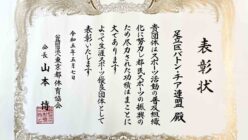 表彰状
足立区バトン・チア連盟 殿
貴団体はスポーツ活動の普及組織
化に努力し都民スポーツの振興の
ため尽力された功績はまことに
大であります
よって生涯スポーツ優良団体として
表彰いたします
令和五年五月七日
公益財団法人東京都体育協会
会長 山本 博